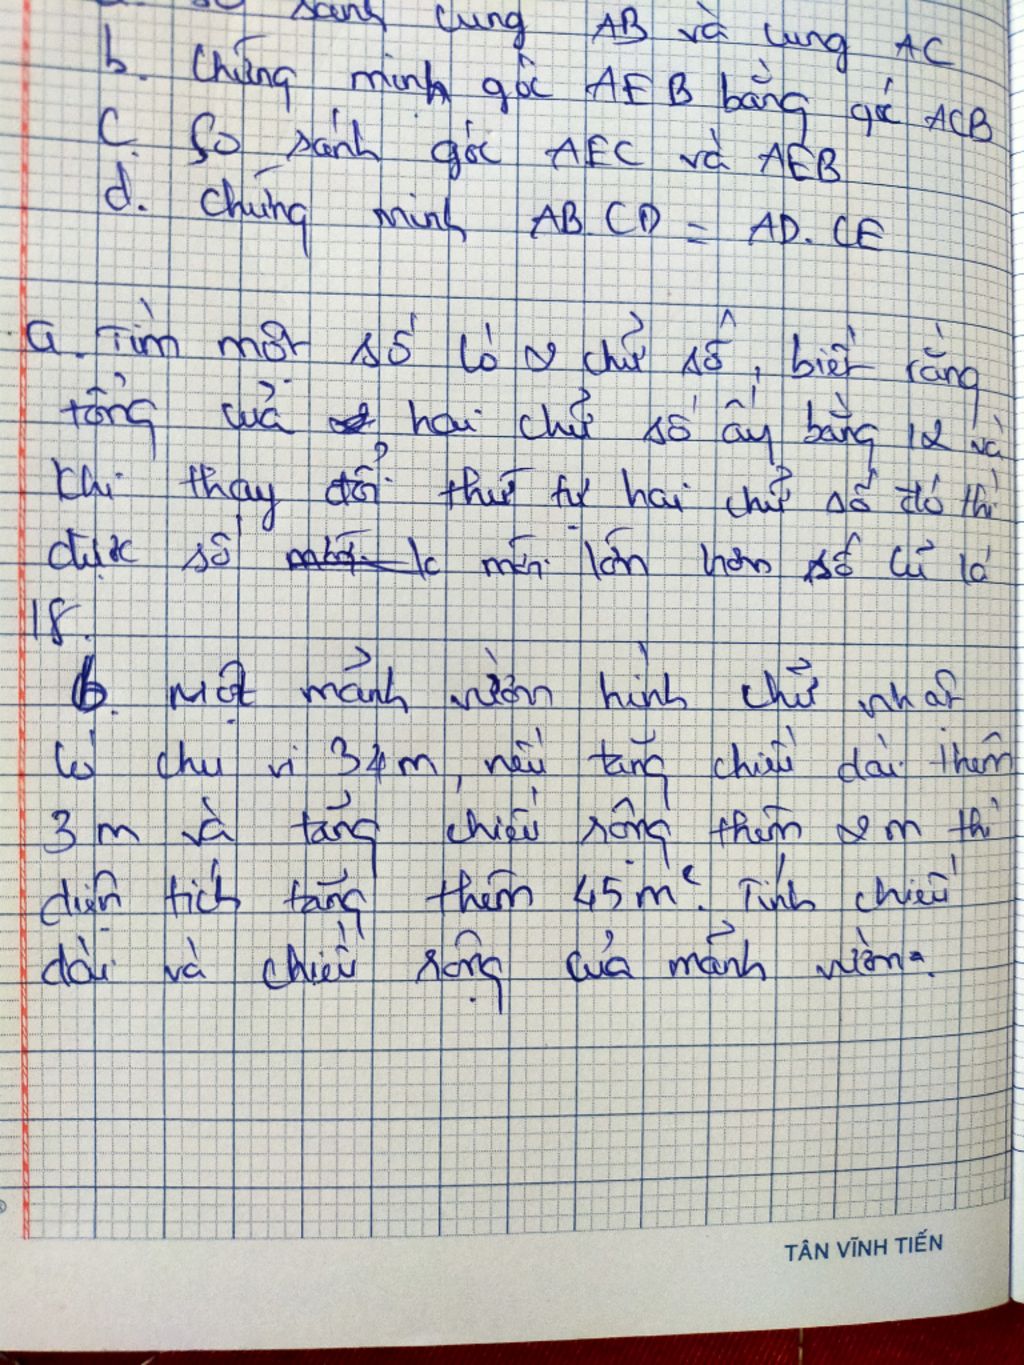 sánh cung AB và cung AC
b. chứng minh góc AEB bằng góc ACB
c. so sánh góc AEC và AEB
d. chứng minh AB.CD = AD.CE
a. Tìm một số có 2 chử số, biết rằng
tổng của hai chử số ấy bằng 12 và
khi thay đổi thứ tự hai chử số đó thì
được số mới lớn hơn số củ là
18.
b. Một mảnh vườn hình chử nhật
có chu vi 34m, nếu tăng chiều dài thêm
3m và tăng chiều rộng thêm 2m thì
diện tích tăng thêm 45m². Tính chiều
dài và chiều rộng của mảnh vườn.
TÂN VĨNH TIẾN